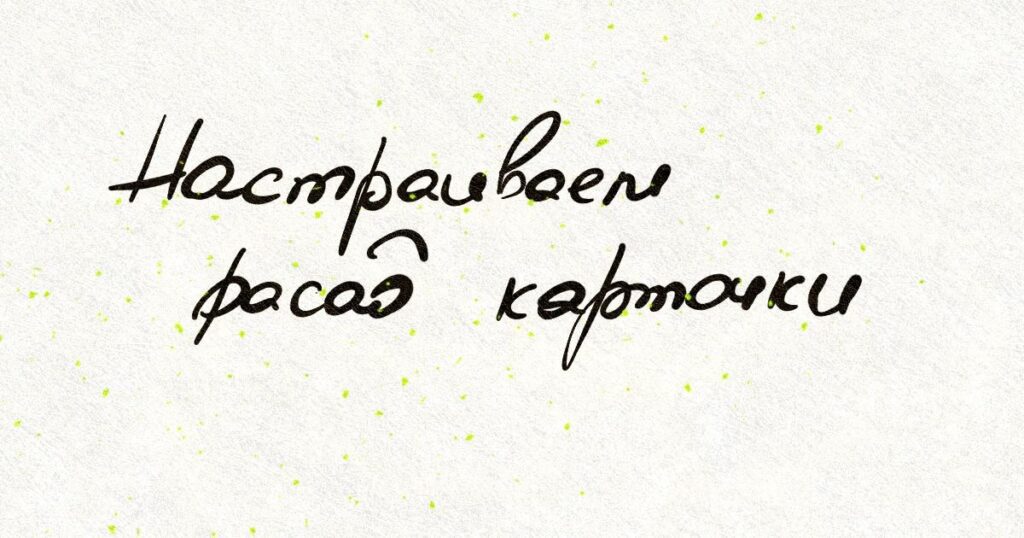 Настраиваем
фасад карточки